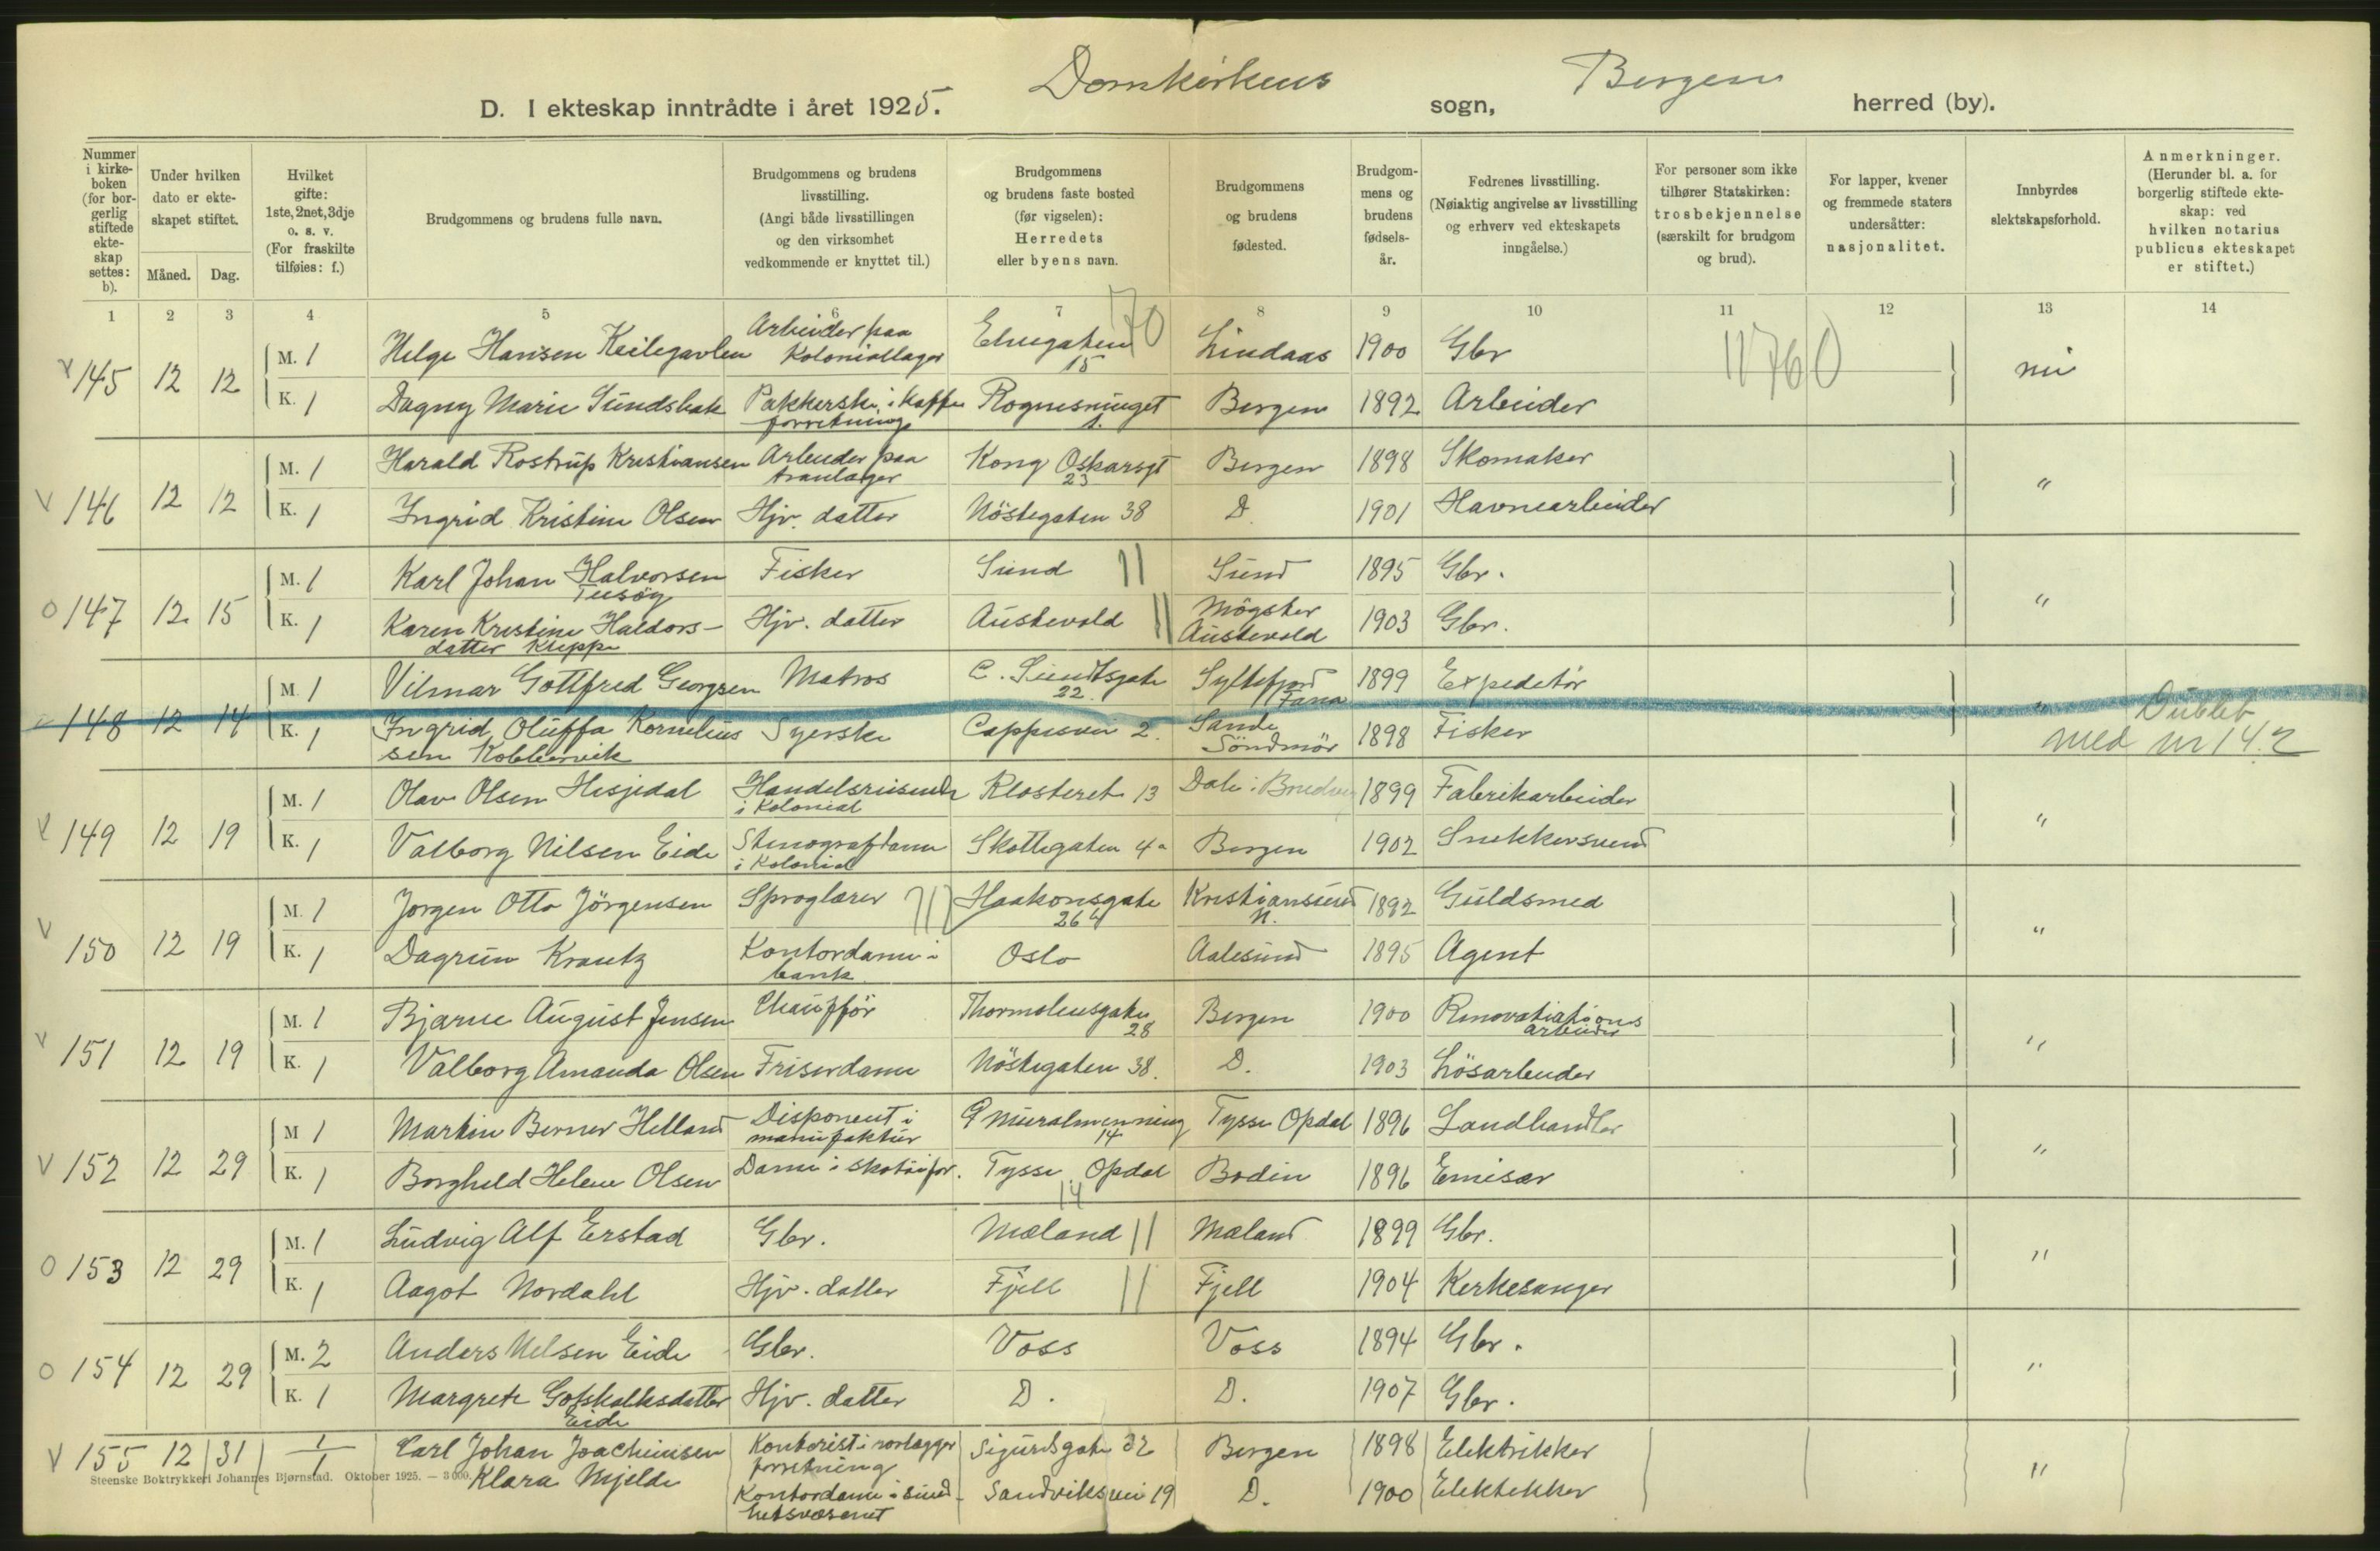 D. I ekteskap inntrådte i året 1925. Domkirkens sogn, Bergen herred (by).
Nummer i kirke-boken (for bor-gerlig stiftede ekte-skap settes: b).
Under hvilken dato er ekte-skapet stiftet.
Måned. Dag.
Hvilket gifte: 1ste, 2net, 3dje o. s. v. (For fraskilte tilføies: f.)
Brudgommens og brudens fulle navn.
Brudgommens og brudens livsstilling. (Angi både livsstillingen og den virksomhet vedkommende er knyttet til.)
Brudgommens og brudens faste bosted (før vigselen): Herredets eller byens navn.
Brudgommens og brudens fødested.
Brudgom-mens og brudens fødsels-år.
Fedrenes livsstilling. (Nøiaktig angivelse av livsstilling og erhverv ved ekteskapets inngåelse.)
For personer som ikke tilhører Statskirken: trosbekjennelse (særskilt for brudgom og brud).
For lapper, kvener og fremmede staters undersåtter: nasjonalitet.
Innbyrdes slektskapsforhold.
Anmerkninger. (Herunder bl. a. for borgerlig stiftede ekte-skap: ved hvilken notarius publicus ekteskapet er stiftet.)
1 2 3 4 5 6 7 8 9 10 11 12 13 14
70
11760
V 145 12 12 M. 1 Helge Hansen Keilegavlen Arbeider paa Koloniallager Elvegaten 15 Lindaas 1900 Gbr nei
K. 1 Dagny Marie Sundsbak Pakkerske i Kaffe forretning Rognesmuget 1. Bergen 1892 Arbeider
V 146 12 12 M. 1 Harald Rostrup Kristiansen Arbeider paa tranlager Kong Oskarsgt 23 Bergen 1898 Skomaker "
K. 1 Ingrid Kristine Olsen Hjv. datter Nöstegaten 38 D. 1901 Havnearbeider
O 147 12 15 M. 1 Karl Johan Halvorsen Sund Fisker Sund 1895 Gbr. "
K. 1 Karen Kristine Haldors-datter Kleppe Hjv. datter Austevold Mögster Austevold 1903 Gbr.
148 12 14 M. 1 Vilmar Gottfred Georgsen Matros C. Sundtsgate 22. Syltefjord Fana 1899 Expeditör "
K. 1 Ingrid Oluffa Kornelius sen Koblbervik Syerske Cappesvei 2. Sande Söndmör 1898 Fisker Dublet med nr 142
V 149 12 19 M. 1 Olav Olsen Hesjedal Handelsreisende i Kolonial Klosteret 13 Dale i Bruvik 1899 Fabrikarbeider "
K. 1 Valborg Nilsen Eide Stenografdame i Kolonial Skottegaten 4a Bergen 1902 Snekkersvend
V 150 12 19 M. 1 Jorgen Otto Jörgensen Sproglærer Haakonsgate 26 Kristiansund N. 1892 Guldsmed "
K. 1 Dagrun Krantz Kontordame i bank Oslo Aalesund 1895 Agent
V 151 12 19 M. 1 Bjarne August Jensen Chaufför Thormolensgate 28 Bergen 1900 Renovations arbeider "
K. 1 Valborg Amanda Olsen Friserdame Nöstegaten 38. D. 1903 Lösarbeider
V 152 12 29 M 1 Martin Berner Helland Disponent i manufaktur Muralmenning 14 Tysse Opdal 1896 Landhandler "
K. 1 Borghild Helene Olsen Dame i skotöifor. Tysse Opdal 14 Bodin 1896 Emisær
O 153 12 29 M. 1 Ludvig Alf Erstad Gbr. Mæland Mæland 1899 Gbr. "
K. 1 Aagot Nordahl Hjv. datter Fjell Fjell 1904 Kirkesanger
O 154 12 29 M. 2 Anders Nilsen Eide Gbr. Voss Voss 1894 Gbr. "
K. 1 Margrete Gotskalksdatter Eide Hjv. datter D. D. 1907 Gbr.
V 155 12 31 1 Carl Johan Joachimsen Kontorist i rorlægger forretning Sigurdsgate 22 Bergen 1898 Elektrikker "
1 Klara Mjelde Kontordame i sund-hetsvæsenet Sandviksvei 19 D. 1900 Elektrikker
Steenske Boktrykkeri Johannes Bjørnstad. Oktober 1925. — 3000.